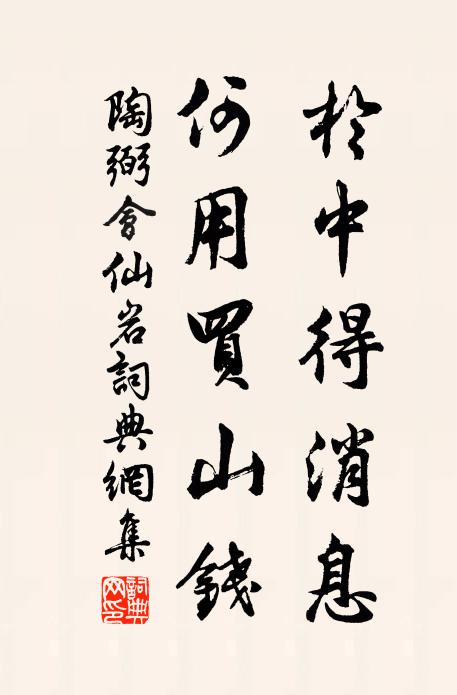 於中得消息
何用買山錢
陶弼會仙岩詞典網集
詞典網印